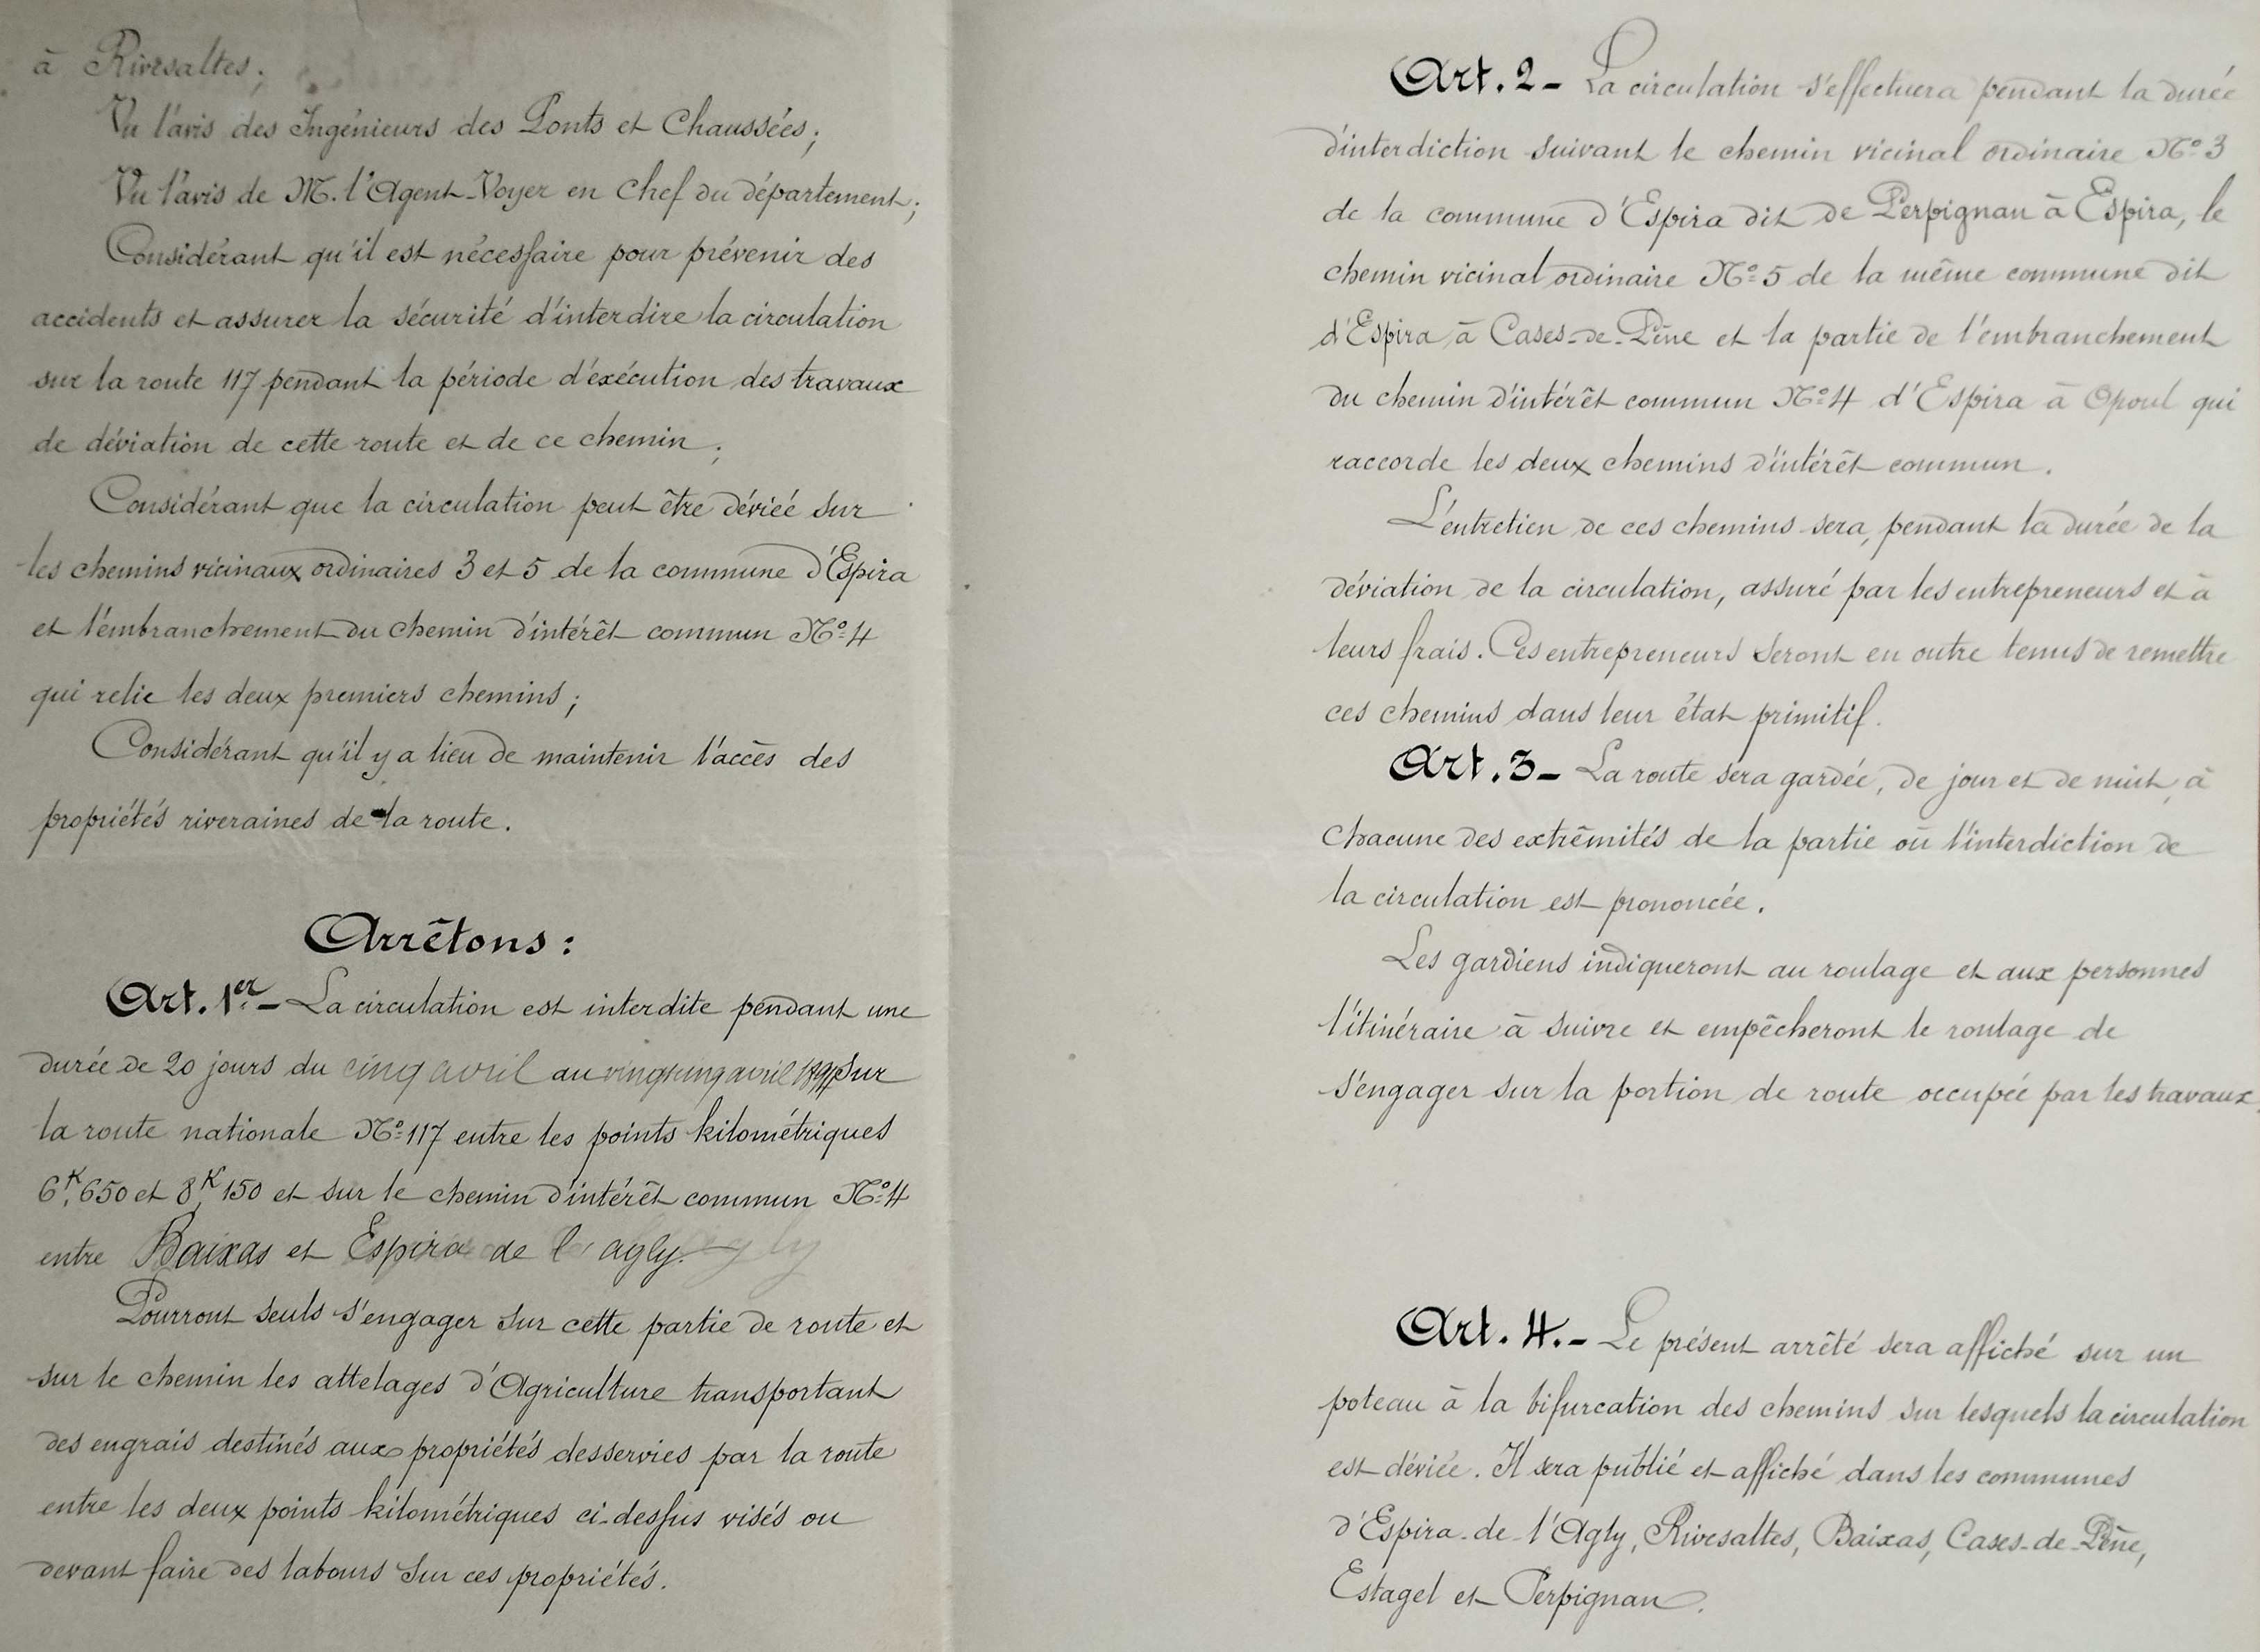 à Rivesaltes;
Vu l'avis des Ingénieurs des Ponts et Chaussées;
Vu l'avis de M. l'Agent-Voyer en Chef du département;
Considérant qu'il est nécessaire pour prévenir des
accidents et assurer la sécurité d'interdire la circulation
sur la route 117 pendant la période d'éxécution des travaux
de déviation de cette route et de ce chemin;
Considérant que la circulation peut être déviée sur
les chemins vicinaux ordinaires 3 et 5 de la commune d'Espira
et l'embranchement du chemin d'intérêt commun Nº 4
qui relie les deux premiers chemins;
Considérant qu'il y a lieu de maintenir l'accès des
propriétés riveraines de la route.
Arrêtons:
Art. 1er - La circulation est interdite pendant une
durée de 20 jours du cinq avril au vingt cinq avril sur
la route nationale Nº 117 entre les points kilométriques
6K,650 et 8K,150 et sur le chemin d'intérêt commun Nº 4
entre Baixas et Espira de l'agly.
Pourront seuls s'engager sur cette partie de route et
sur le chemin les attelages d'Agriculture transportant
des engrais destinés aux propriétés desservies par la route
entre les deux points kilométriques ci-dessus visés ou
devant faire des labours sur ces propriétés.
Art. 2 - La circulation s'effectuera pendant la durée
d'interdiction suivant le chemin vicinal ordinaire Nº 3
de la commune d'Espira dit de Perpignan à Espira, le
chemin vicinal ordinaire Nº 5 de la même commune dit
d'Espira à Cases-de-Pène et la partie de l'embranchement
du chemin d'intérêt commun Nº 4 d'Espira à Opoul qui
raccorde les deux chemins d'intérêt commun.
L'entretien de ces chemins sera, pendant la durée de la
déviation de la circulation, assuré par les entrepreneurs et à
leurs frais. Ces entrepreneurs seront en outre tenus de remettre
ces chemins dans leur état primitif.
Art. 3 - La route sera gardée, de jour et de nuit, à
chacune des extrêmités de la partie où l'interdiction de
la circulation est prononcée.
Les gardiens indiqueront au roulage et aux personnes
l'itinéraire à suivre et empêcheront le roulage de
s'engager sur la portion de route occupée par les travaux.
Art. 4. - Le présent arrêté sera affiché sur un
poteau à la bifurcation des chemins sur lesquels la circulation
est déviée. Il sera publié et affiché dans les communes
d'Espira-de-l'Agly, Rivesaltes, Baixas, Cases-de-Pène,
Estagel et Perpignan.